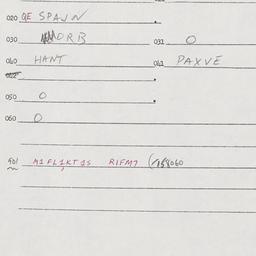 020 QE SPAJN
030 ORB 031 O
040 HANT 041 PAXVE
050 O
060 O
401 M1FL1KTJS RIFM7